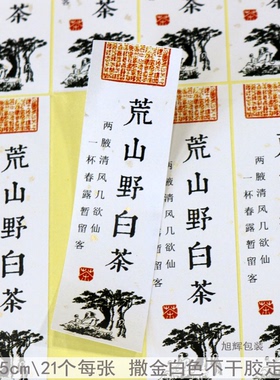 荒山野白茶
两腋清风几欲仙
一杯春露暂留客
荒山野白茶
两腋清风几欲仙
一杯春露暂留客
荒山野白茶
旭辉包装
5cm\21个每张 撒金白色不干胶定